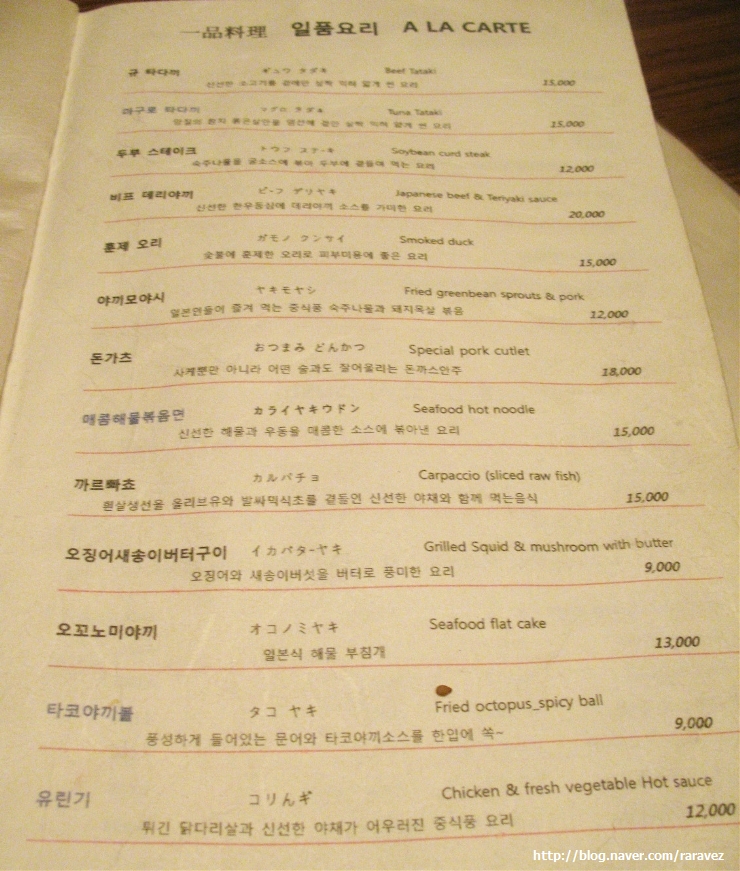 一品料理 일품요리 A LA CARTE
규 타다끼 ギュウ タダキ Beef Tataki
신선한 소고기를 겉에만 살짝 익혀 얇게 썬 요리 15,000
마구로 타다끼 マグロ タダキ Tuna Tataki
양질의 참치 붉은살만을 엄선해 겉만 살짝 익혀 얇게 썬 요리 15,000
두부 스테이크 トウフ ステーキ Soybean curd steak
숙주나물을 굴소스에 볶아 두부에 곁들여 먹는 요리 12,000
비프 데리야끼 ビーフ デリヤキ Japanese beef & Teriyaki sauce
신선한 한우등심에 데리야끼 소스를 가미한 요리 20,000
훈제 오리 ガモノ クンサイ Smoked duck
숯불에 훈제한 오리로 피부미용에 좋은 요리 15,000
야끼모야시 ヤキモヤシ Fried greenbean sprouts & pork
일본인들이 즐겨 먹는 중식풍 숙주나물과 돼지목살 볶음 12,000
돈가츠 おつまみ どんかつ Special pork cutlet
사케뿐만 아니라 어떤 술과도 잘어울리는 돈까스안주 18,000
매콤해물볶음면 カライヤキウドン Seafood hot noodle
신선한 해물과 우동을 매콤한 소스에 볶아낸 요리 15,000
까르빠쵸 カルパチョ Carpaccio (sliced raw fish)
흰살생선을 올리브유와 발싸믹식초를 곁들인 신선한 야채와 함께 먹는음식 15,000
오징어새송이버터구이 イカバターヤキ Grilled Squid & mushroom with butter
오징어와 새송이버섯을 버터로 풍미한 요리 9,000
오꼬노미야끼 オコノミヤキ Seafood flat cake
일본식 해물 부침개 13,000
타코야끼볼 タコ ヤキ Fried octopus_spicy ball
풍성하게 들어있는 문어와 타코야끼소스를 한입에 쏙~ 9,000
유린기 コりんギ Chicken & fresh vegetable Hot sauce
튀긴 닭다리살과 신선한 야채가 어우러진 중식풍 요리 12,000
http://blog.naver.com/raravez